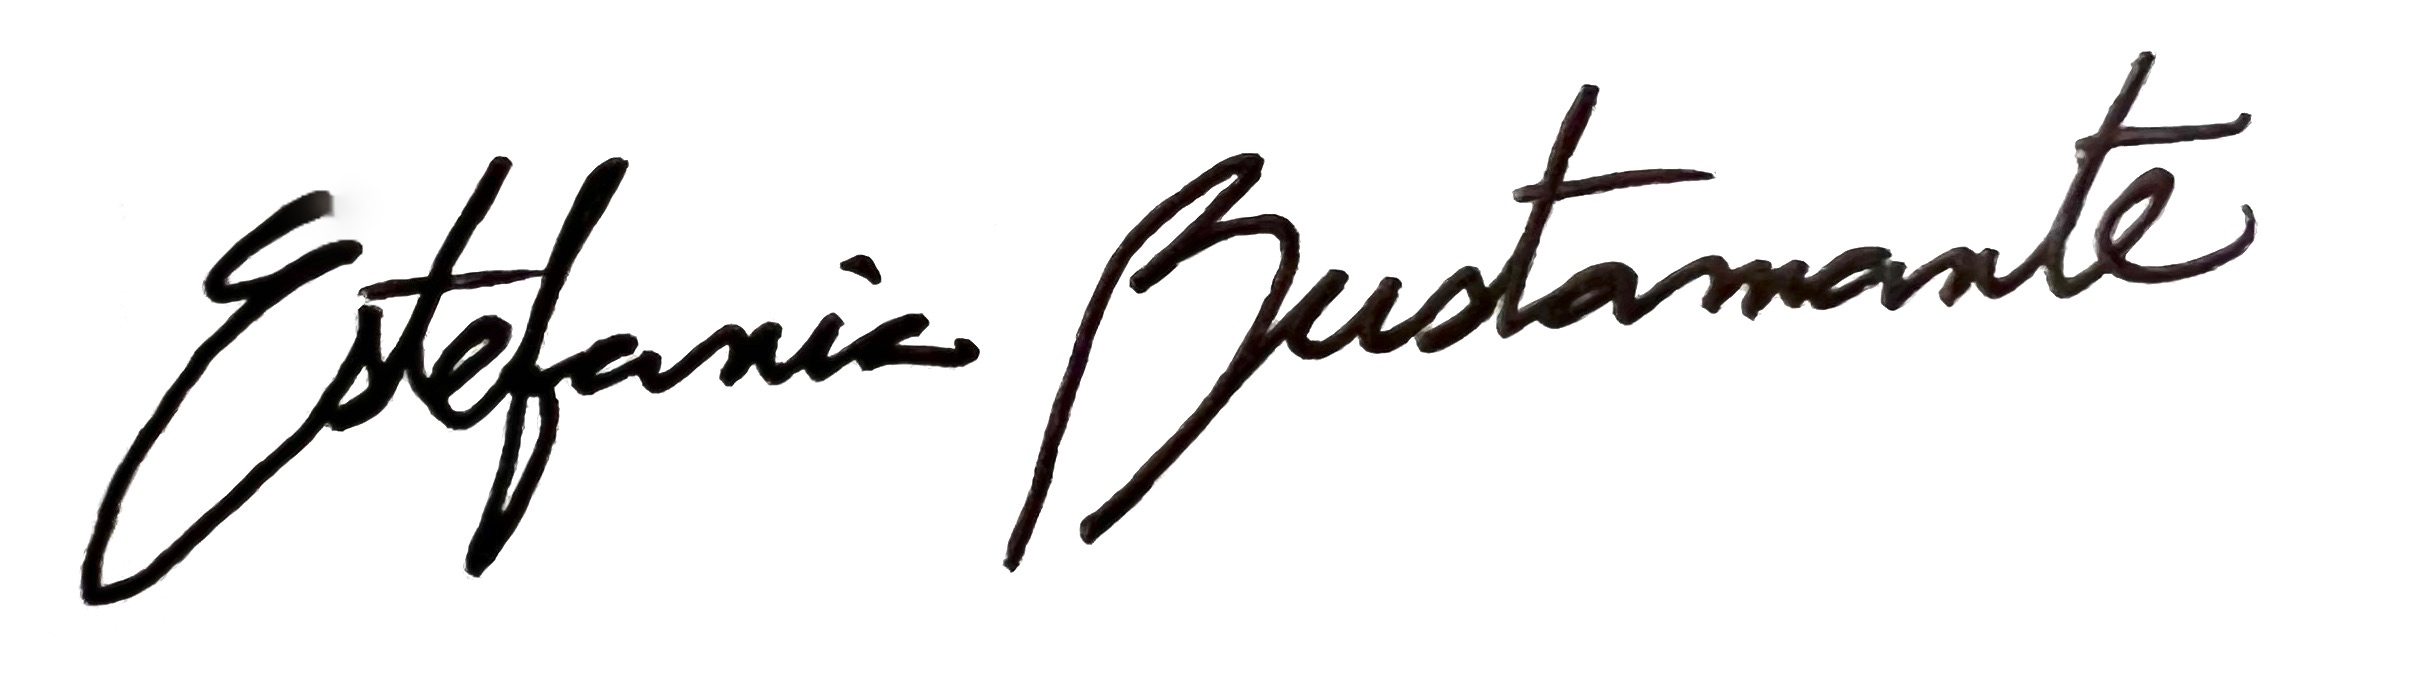 Estefania Bustamante